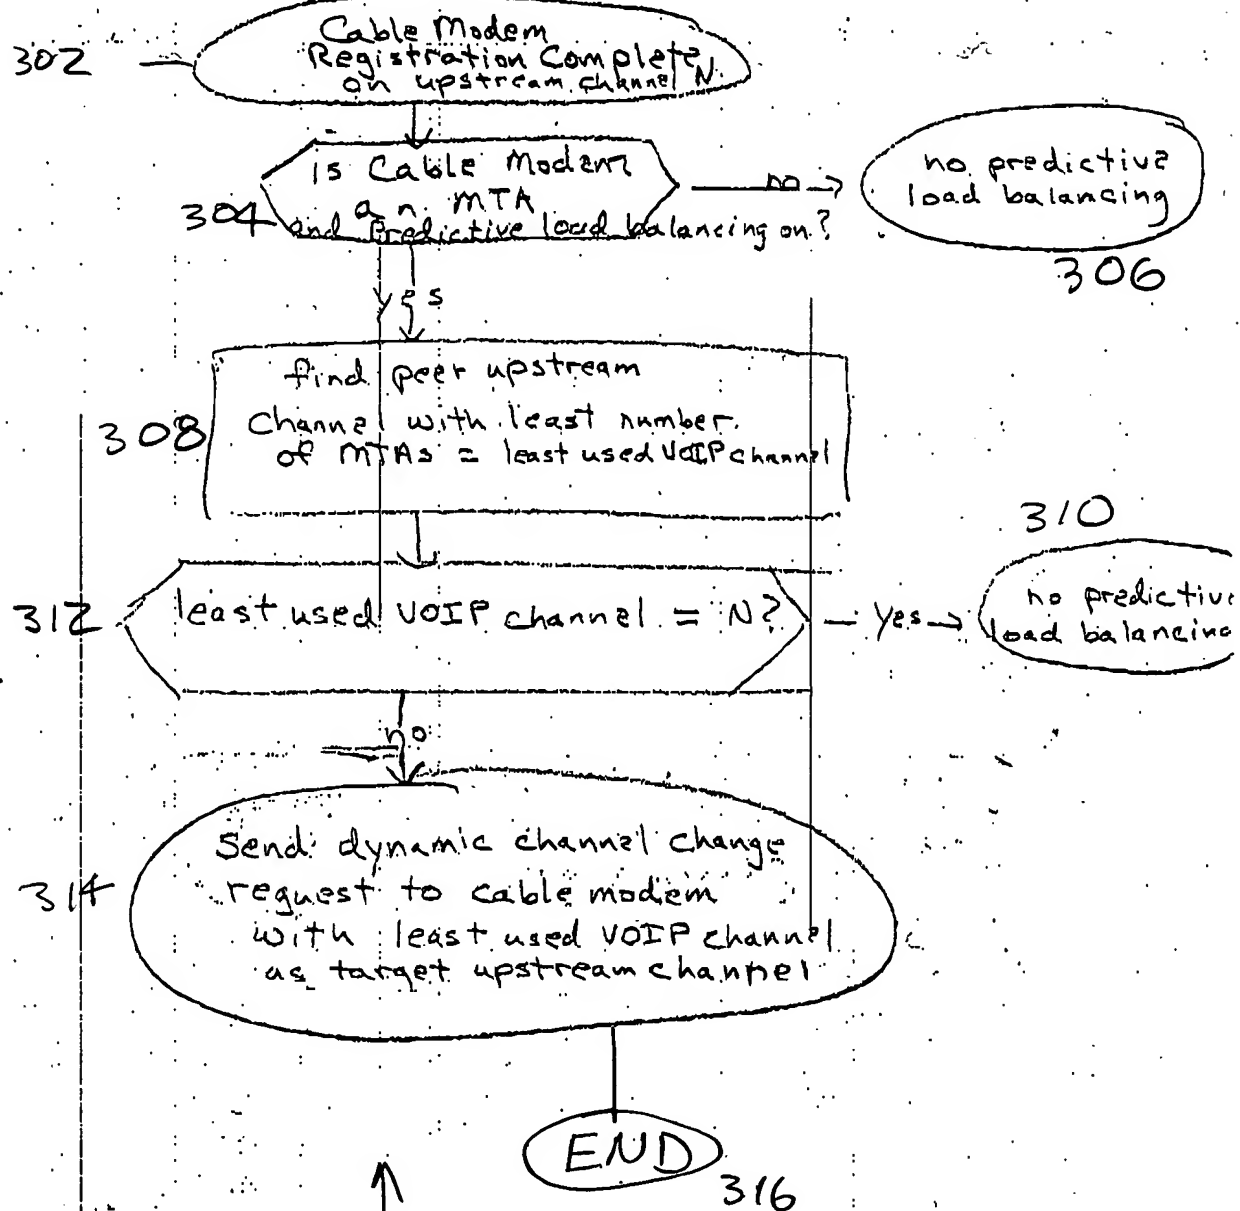 302
Cable Modem
Registration Complete
on upstream channel N.
is Cable Modem
an MTA
304
and Predictive load balancing on?
no
no predictive
load balancing
306
yes
308
find peer upstream
Channel with least number
of MTAs = least used VOIP channel
310
312
least used VOIP channel = N?
yes
no predictive
load balancing
no
314
Send dynamic channel change
request to cable modem
with least used VOIP channel
as target upstream channel
END
316